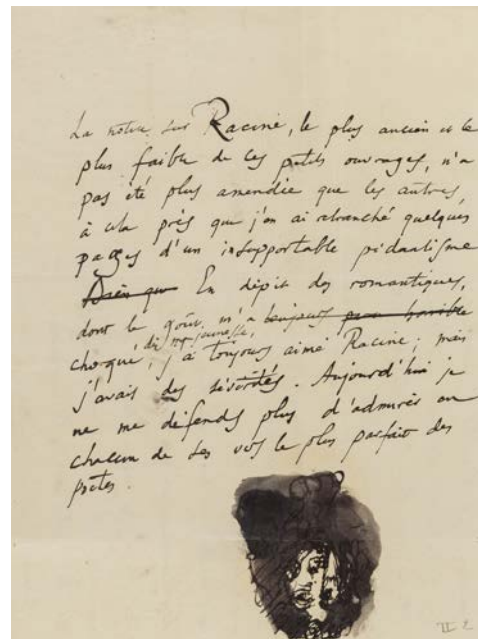 La notice sur Racine, le plus ancien et le
plus faible de ces petits ouvrages, n'a
pas été plus amendée que les autres,
à cela près que j'en ai retranché quelques
pages d'un insupportable pédantisme
Bien que En dépit des romantiques,
dont le goût m'a toujours paru horrible
dès ma jeunesse,
choqué, j'ai toujours aimé Racine ; mais
j'avais des sévérités. Aujourd'hui je
ne me défends plus d'admirer en
chacun de ses vers le plus parfait des
poètes.
II 2